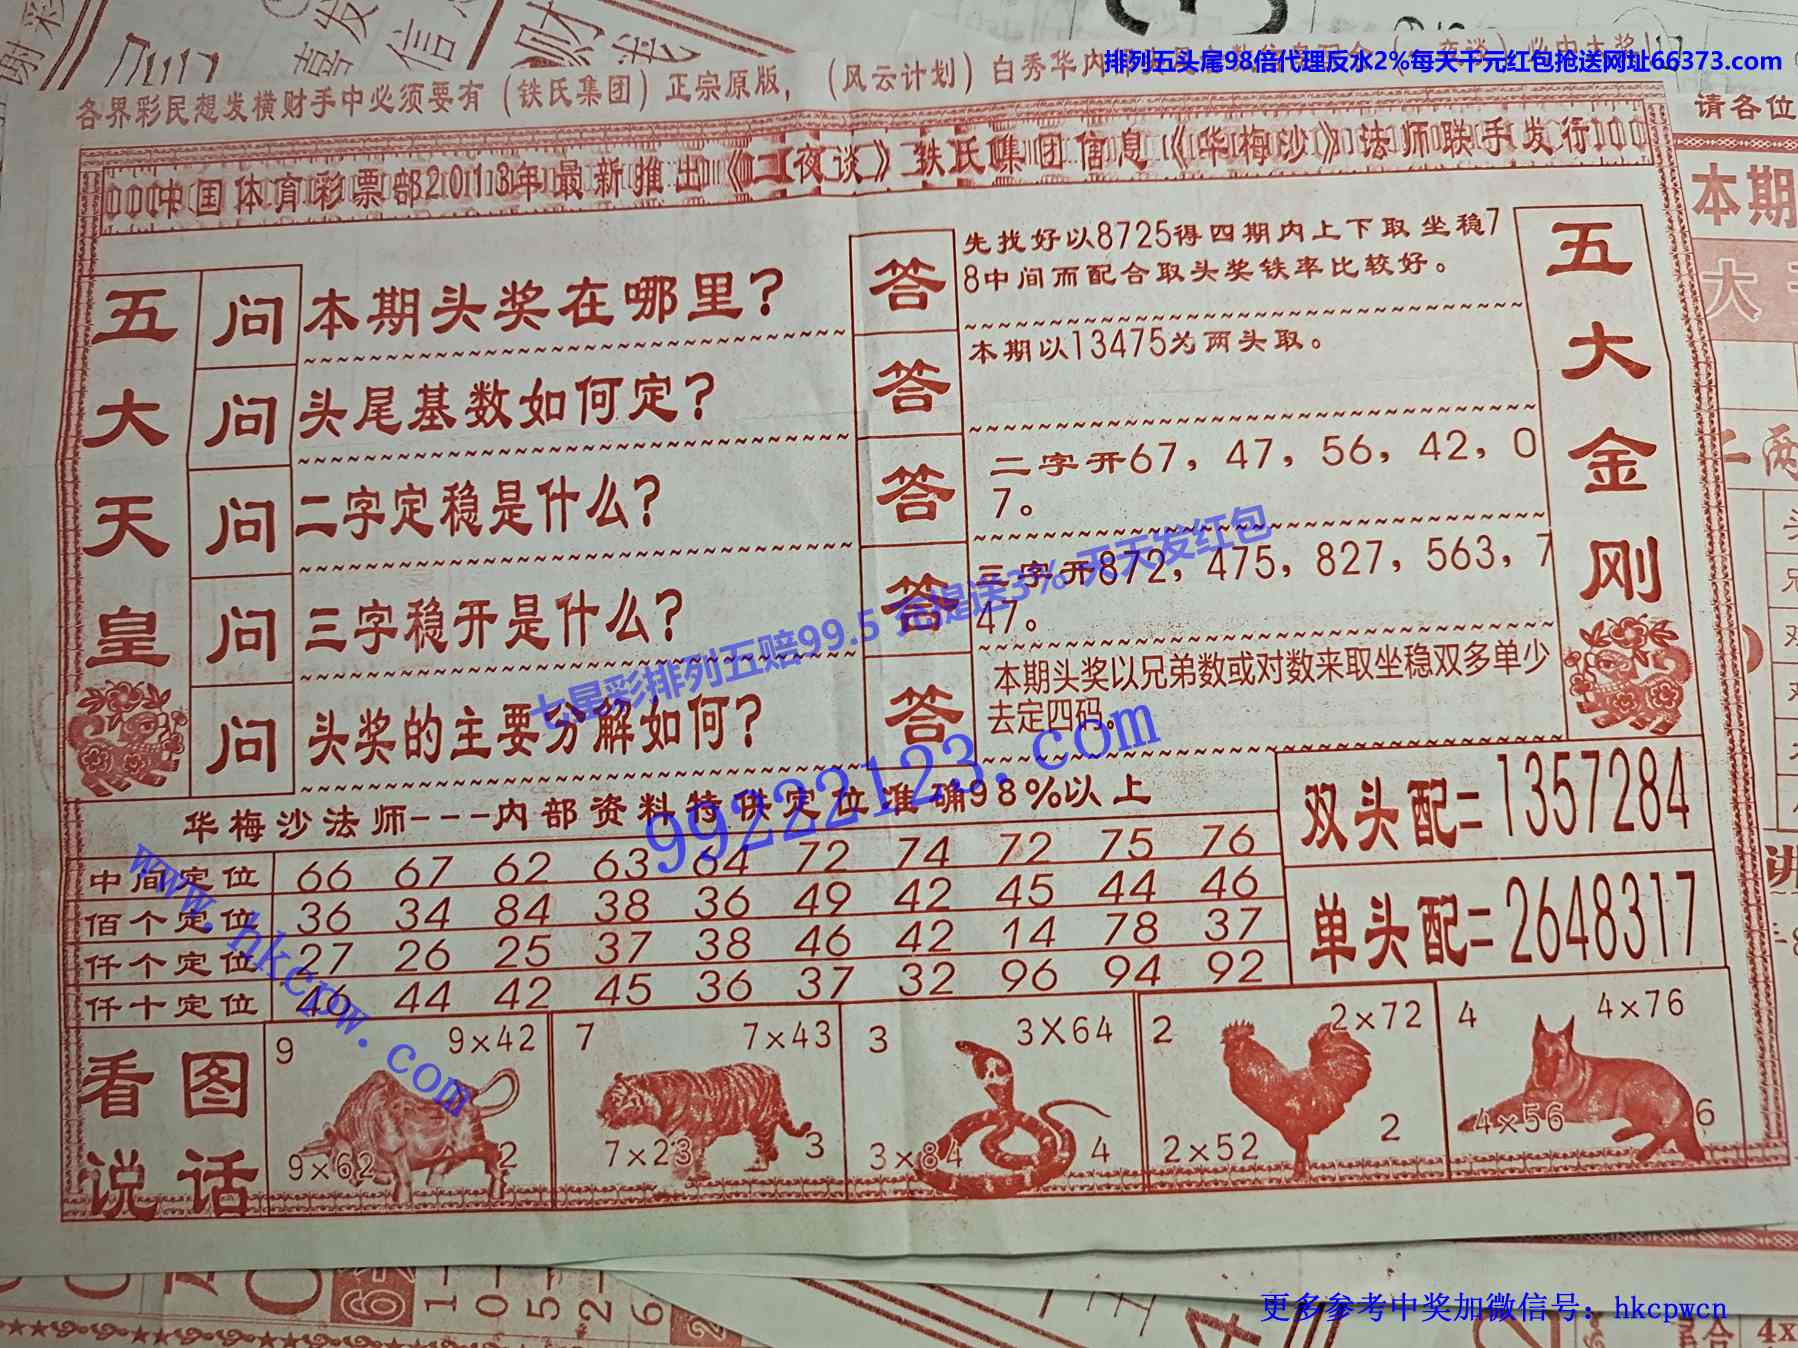 排列五头尾98倍代理反水2%每天千元红包抢送网址66373.com
各界彩民想发横财手中必须要有（铁氏集团）正宗原版，（风云计划）白秀华内
中国体育彩票部2013年最新推出《二夜谈》铁氏集团信息《华梅沙》法师联手发行
请各位
本期
五大天皇
问 本期头奖在哪里？
答 先找好以8725得四期内上下取坐稳7
8中间而配合取头奖铁率比较好。
问 头尾基数如何定？
答 本期以13475为两头取。
问 二字定稳是什么？
答 二字开67，47，56，42，0
7。
问 三字稳开是什么？
答 三字开872，475，827，563，7
47。
问 头奖的主要分解如何？
答 本期头奖以兄弟数或对数来取坐稳双多单少
去定四码。
五大金刚
七星彩排列五赔99.5 充提送3% 天天发红包
99222123.com
www.hkcrw.com
华梅沙法师---内部资料特供定位准确98%以上
中间定位 66 67 62 63 64 72 74 72 75 76
佰个定位 36 34 84 38 36 49 42 45 44 46
仟个定位 27 26 25 37 38 46 42 14 78 37
仟十定位 46 44 42 45 36 37 32 96 94 92
双头配=1357284
单头配=2648317
看图说话
9 9×42
9×62 2
7 7×43
7×23 3
3 3X64
3×84 4
2 2×72
2×52 2
4 4×76
4×56 6
更多参考中奖加微信号：hkcpwcn